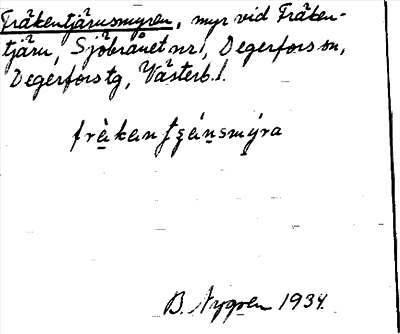 Fräkentjärnsmyren, myr vid Fräken-
tjärn, Sjöbrånet nr 1, Degerfors sn,
Degerfors tg, Västerb. l.
B. Nygren 1934.